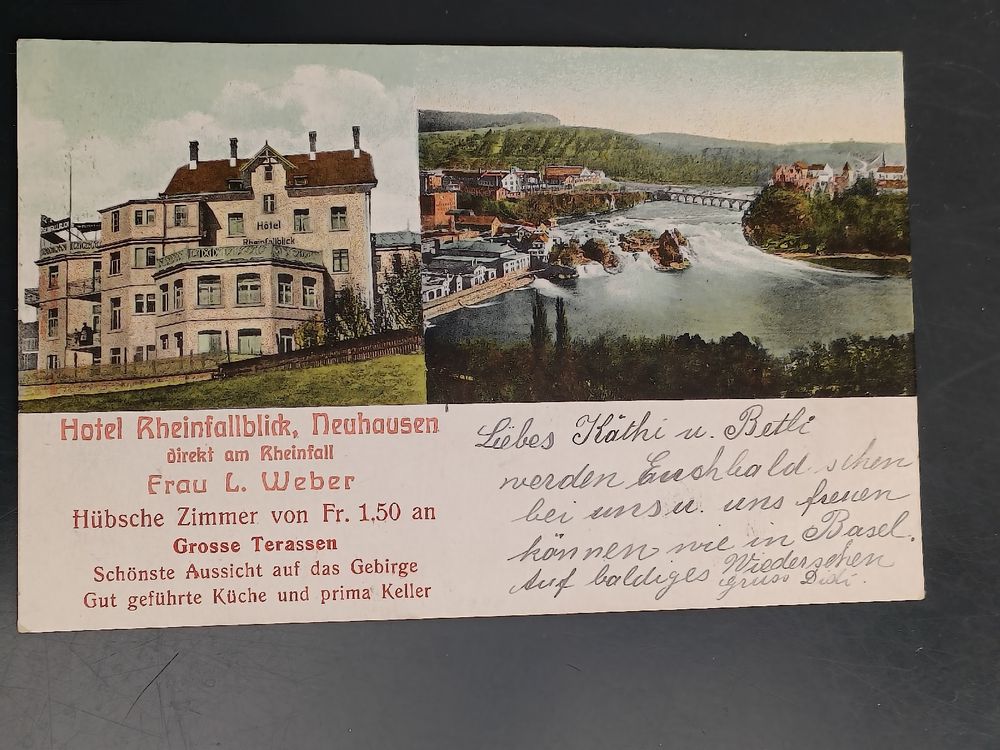 Hotel
Rheinfallblick
Hotel Rheinfallblick, Neuhausen
direkt am Rheinfall
Frau L. Weber
Hübsche Zimmer von Fr. 1,50 an
Grosse Terassen
Schönste Aussicht auf das Gebirge
Gut geführte Küche und prima Keller
Liebes Käthi u. Betli
werden Euch bald sehen
bei uns u. uns freuen
können wie in Basel.
Auf baldiges Wiedersehen
gruss Didi.